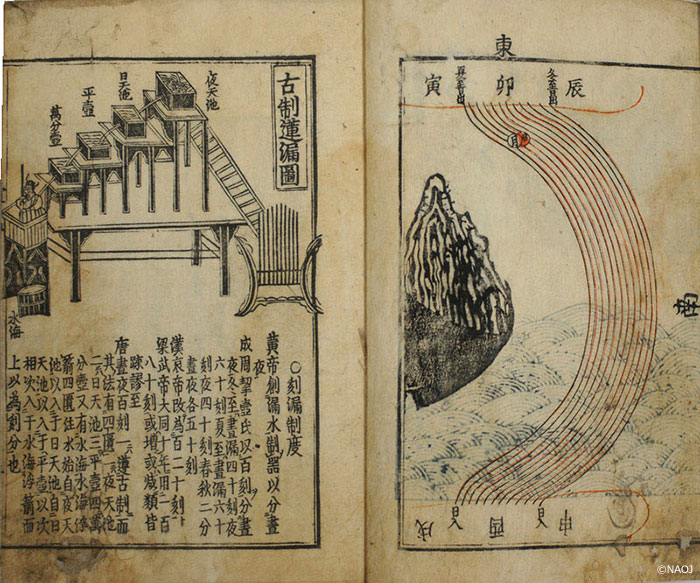 東
辰
冬至日出
卯
夏至日出
寅
月
南
申
日入
酉
日入
戌
古制蓮漏圖
夜天池
日天池
平壺
萬分壺
水海
○刻漏制度
黄帝創漏水制器以分晝夜
成周挈壺氏以百刻分晝
夜冬至晝漏四十刻夜
六十刻夏至晝漏六十
刻夜四十刻春秋二分
晝夜各五十刻
漢哀帝改為百二十刻
梁武帝大同十年用一百
八十刻或增或減類皆
踈謬至
唐晝夜百刻一遵古制而
其法有四匱一夜天池
二日天池三平壺四萬
分壺又有水海水海浮
箭四匱注水始自夜天
池以入于日天池自日
天池以入于平壺以次
相次入于水海浮箭而
上以為刻分也
©NAOJ